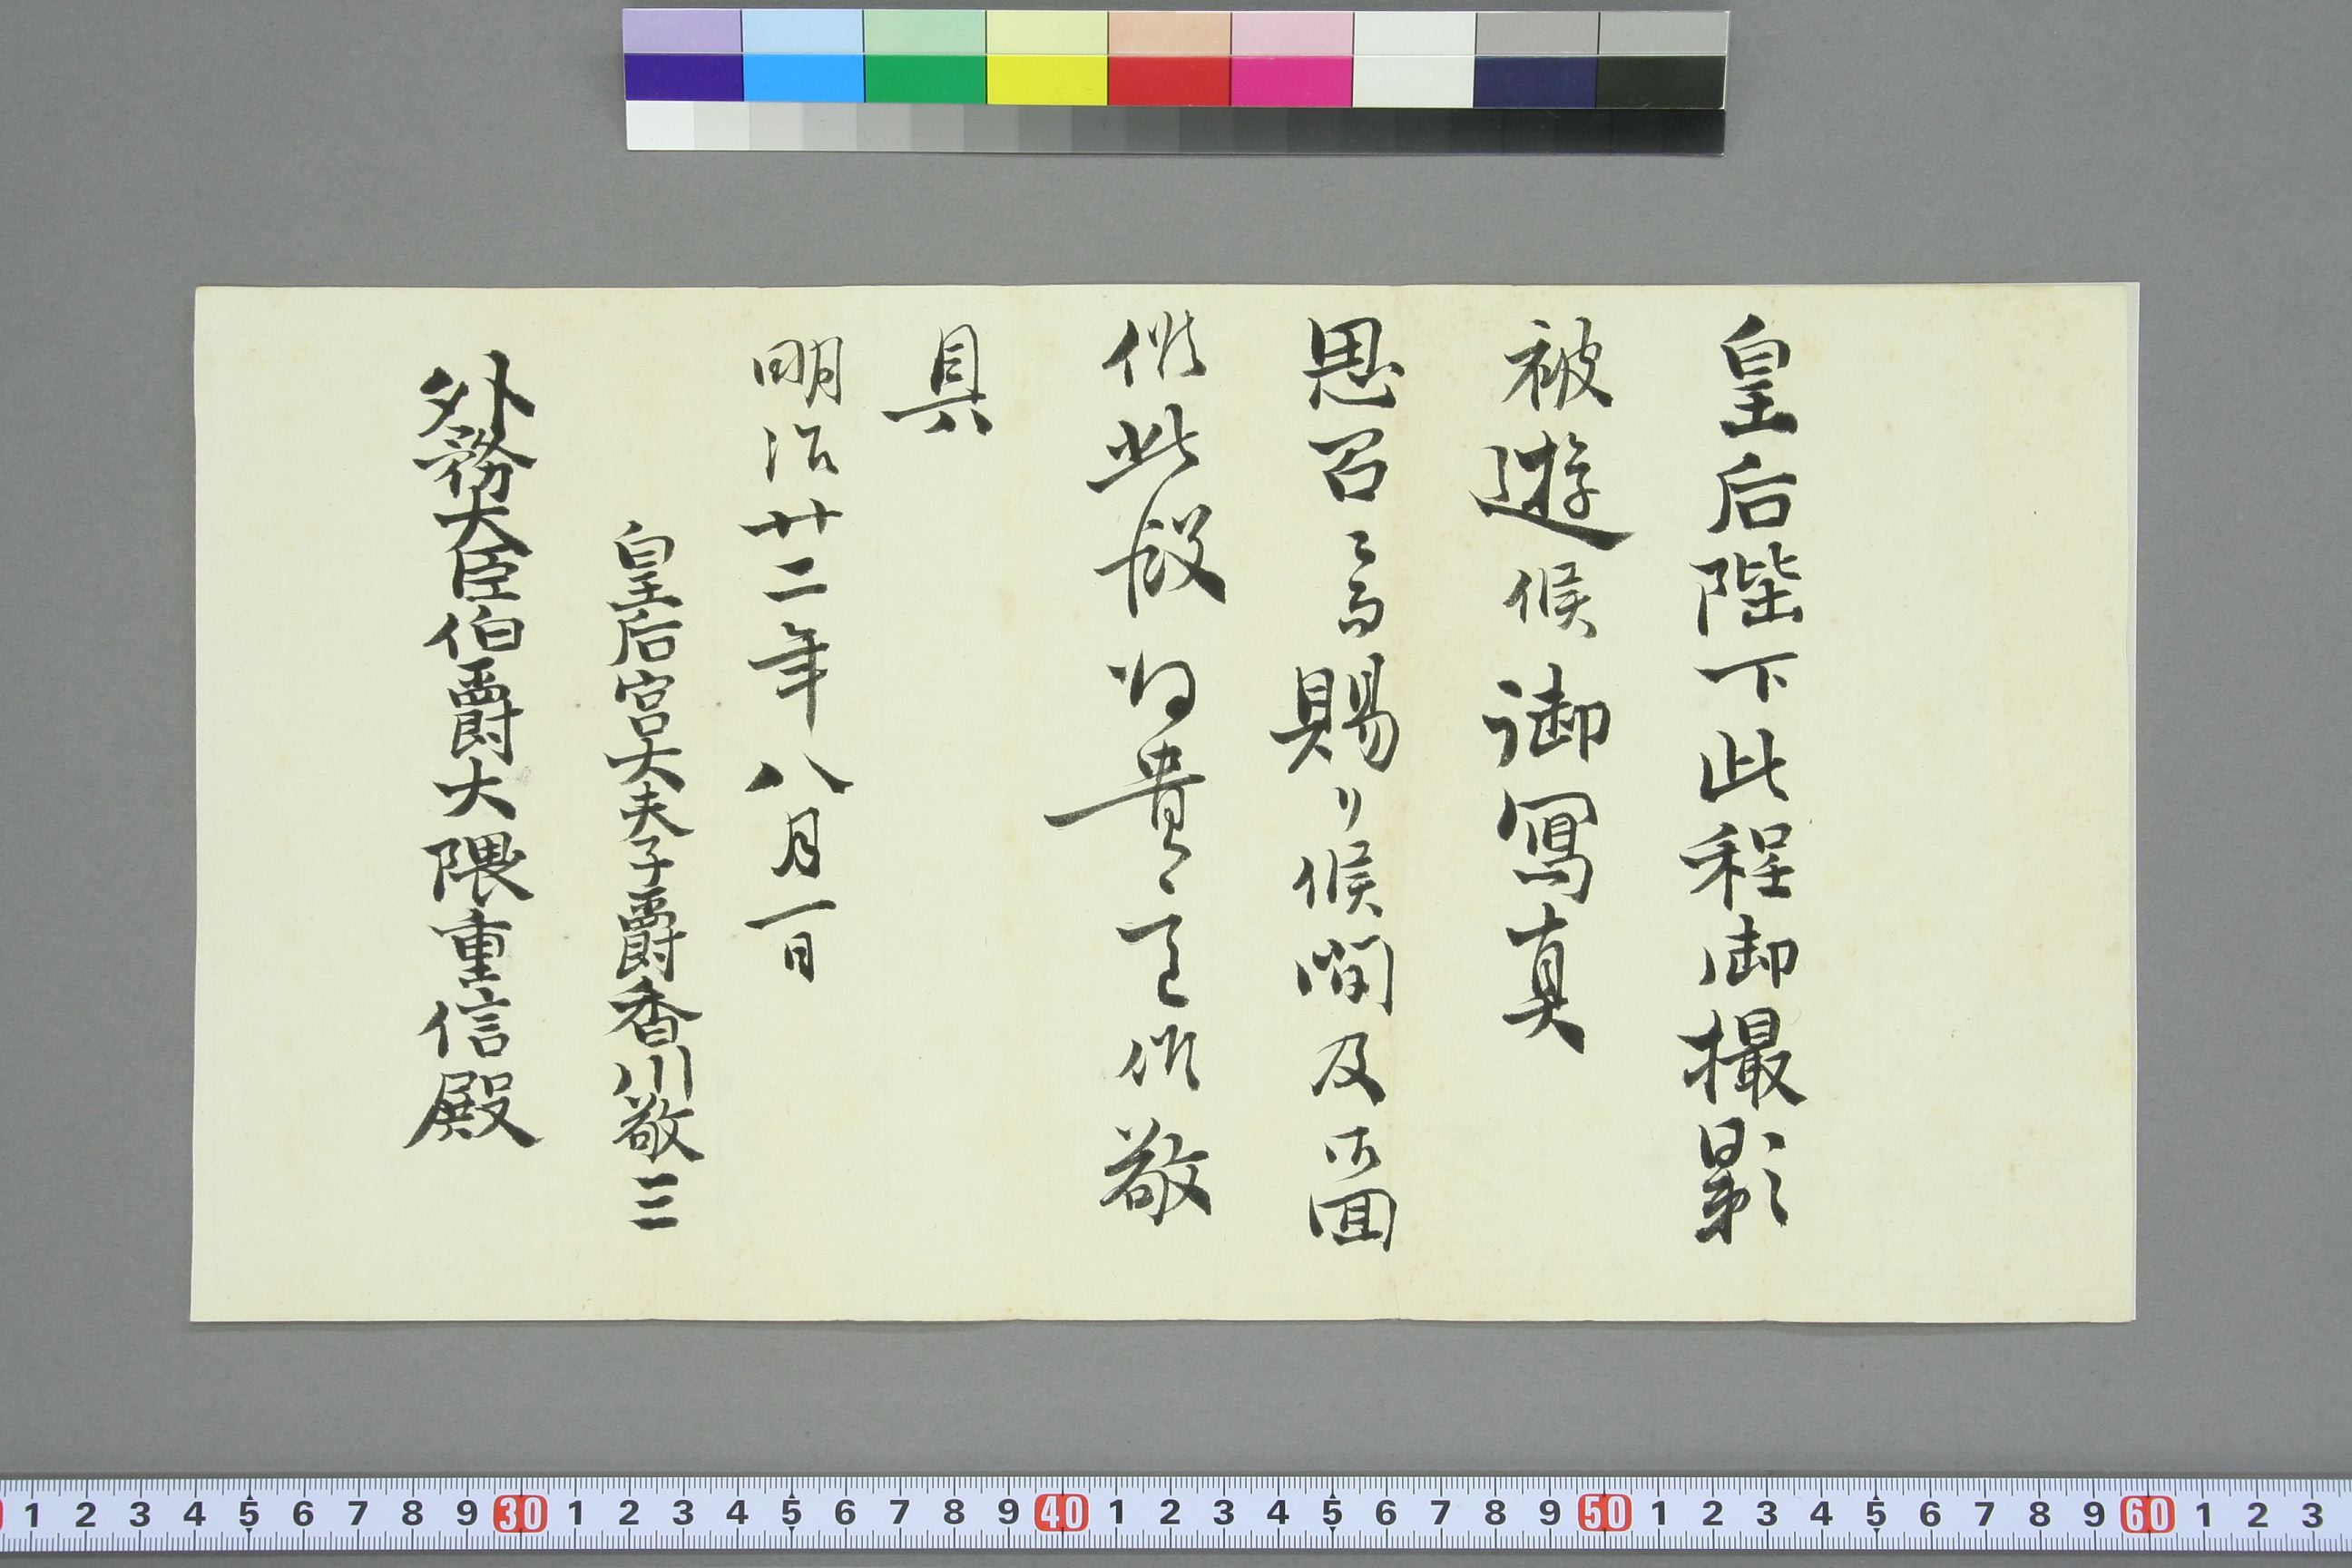 皇后陛下此程御撮影
被遊候御寫真
思召ニ而賜リ候間及御回
候此段得貴意度候敬
具
明治廿二年八月一日
皇后宮大夫子爵香川敬三
外務大臣伯爵大隈重信殿
1 2 3 4 5 6 7 8 9 30 1 2 3 4 5 6 7 8 9 40 1 2 3 4 5 6 7 8 9 50 1 2 3 4 5 6 7 8 9 60 1 2 3